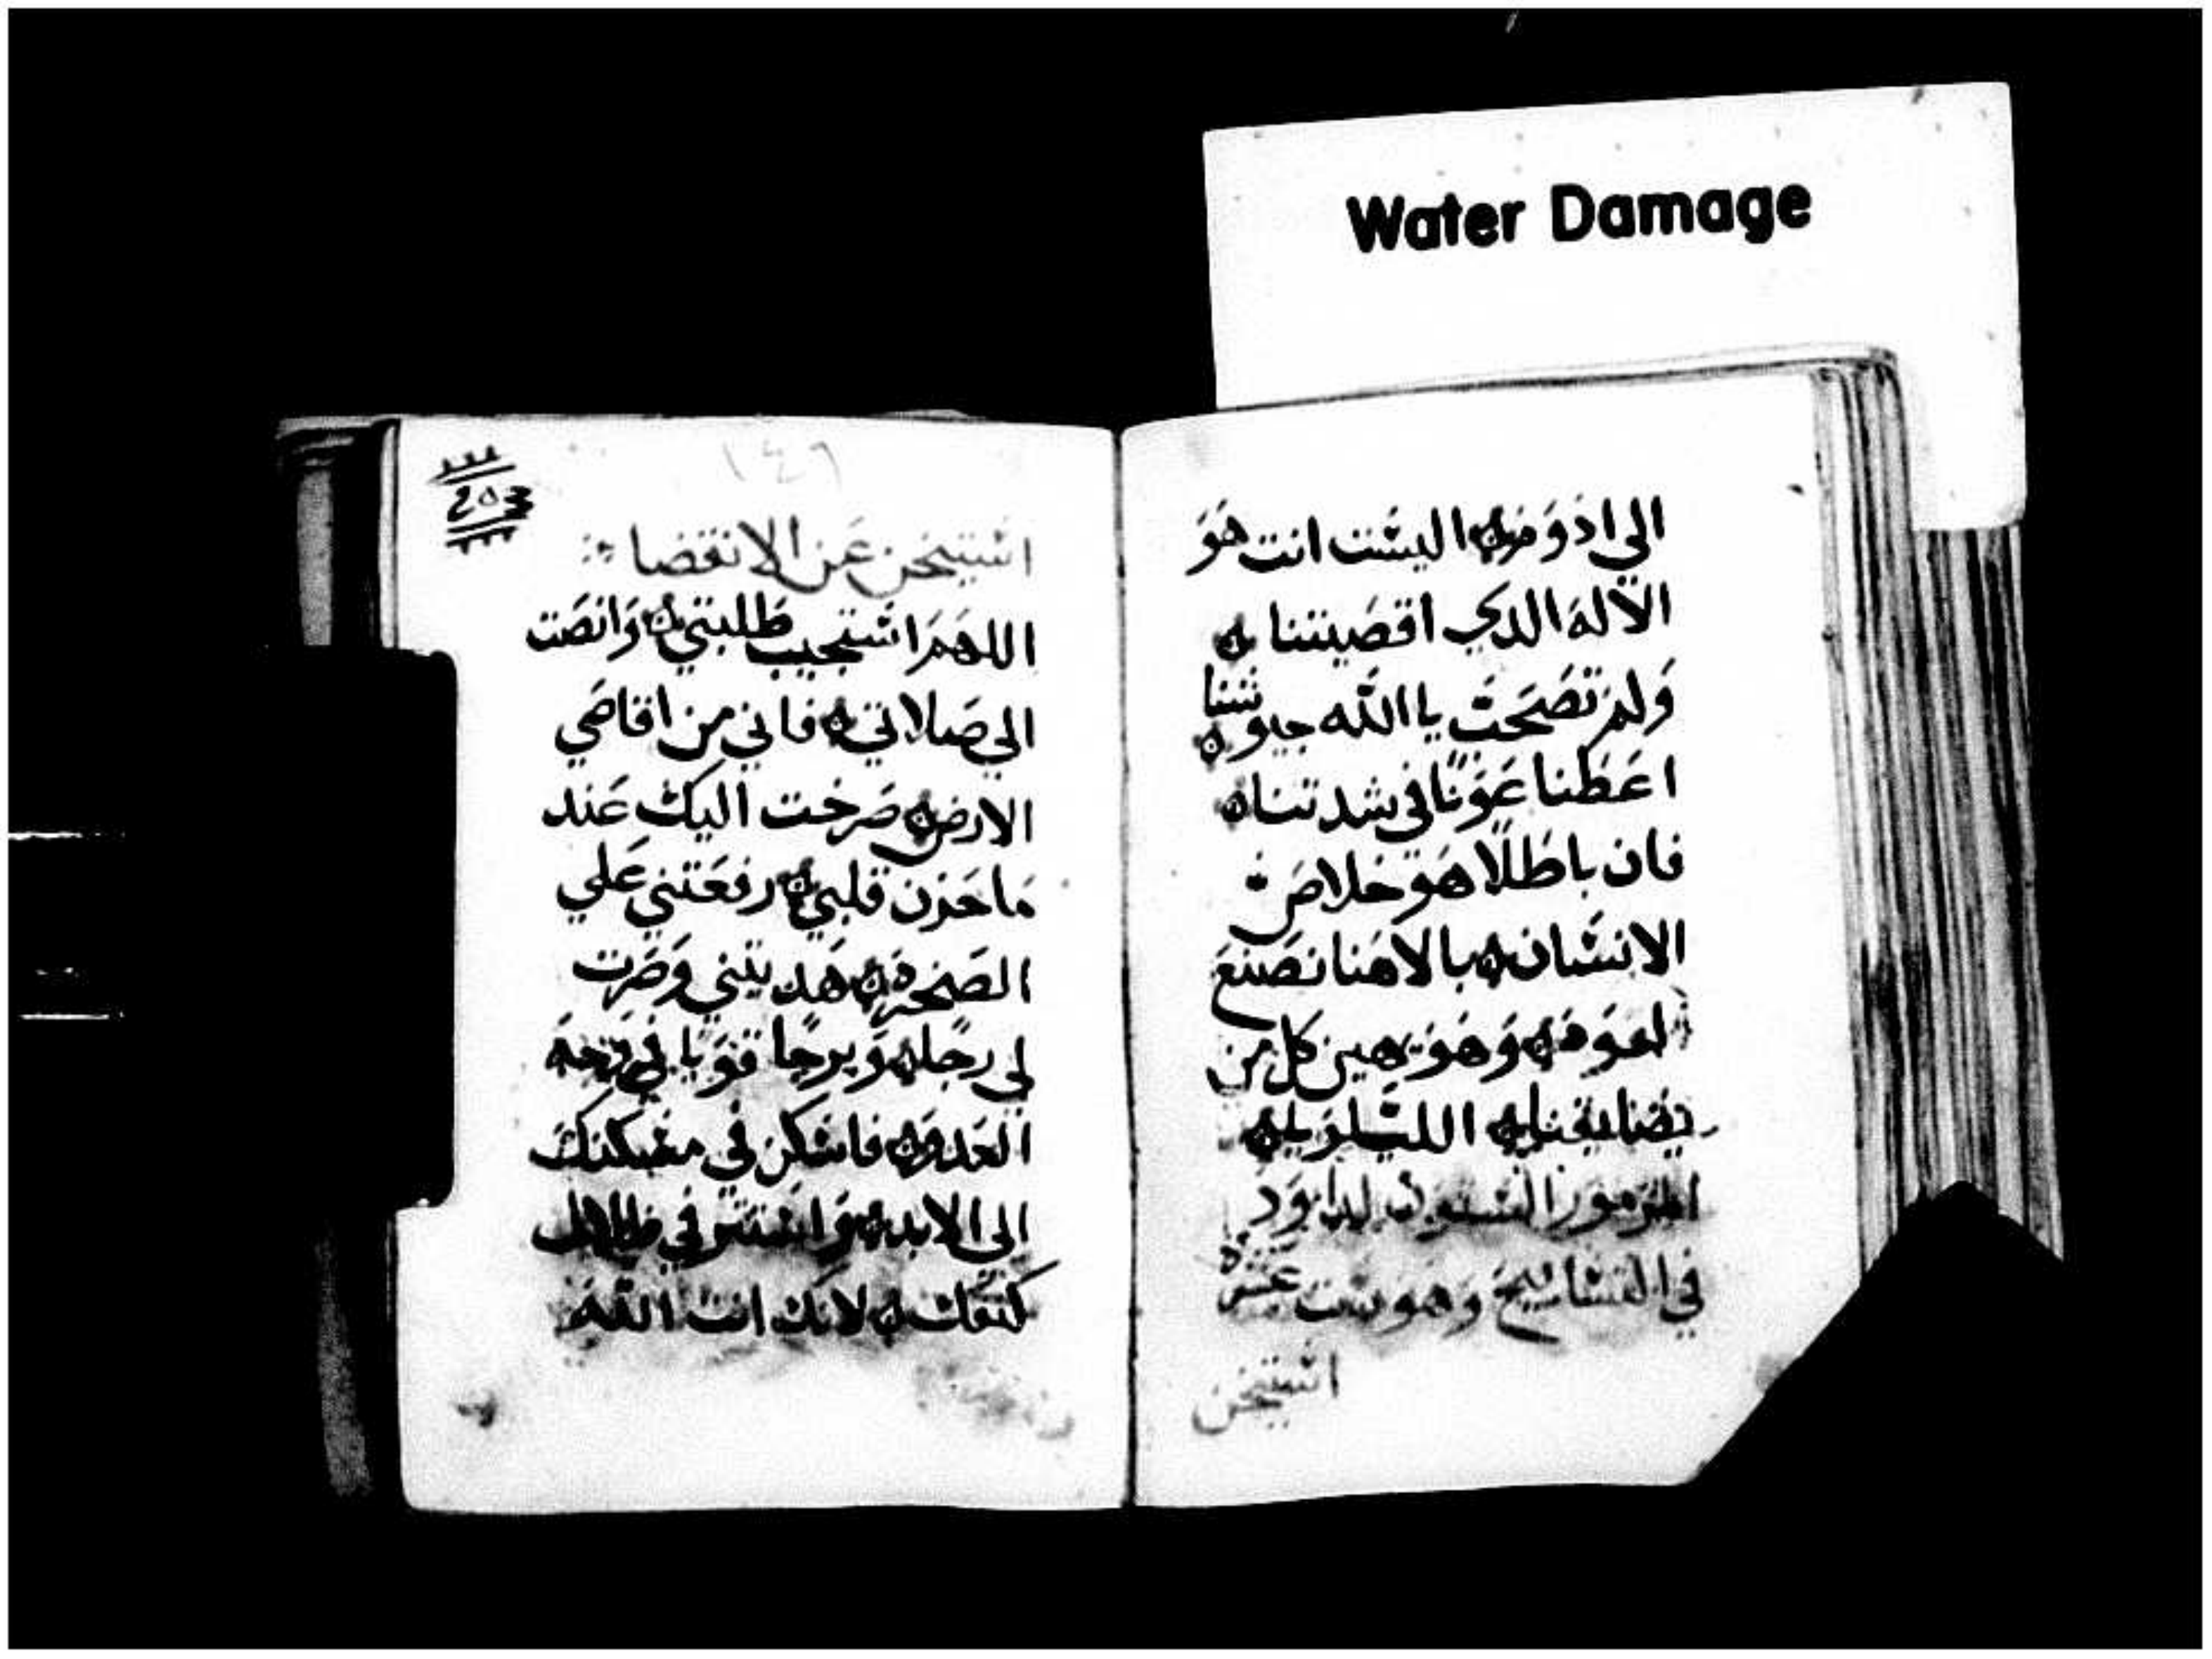 Water Damage
الي ادوم اليست انت هو
الاله الدي اقصيتنا
ولم تصحت يا الله جيوشنا
اعطنا عونا في شدتنا
فان باطلا هو خلاص
الانسان بالاهنا نصنع
القوه وهو يهين كل من
يضايقنا الليلويا
المزمور الستون لداوود
في التسابيح وهو بيت عشره
استيخن
١٤٦
٢٥٣
استيخن عن الانقضا
اللهم استجيب طلبتي وانصت
الي صلاتي فاني من اقاصي
الارض صرخت اليك عند
ما حزن قلبي رفعتني علي
الصخره هديتني وصرت
لي رجا وبرجا قويا في وجه
العدو فاسكن في مسكنك
الي الابد واستتر في ظلال
كنفك لانك انت الله